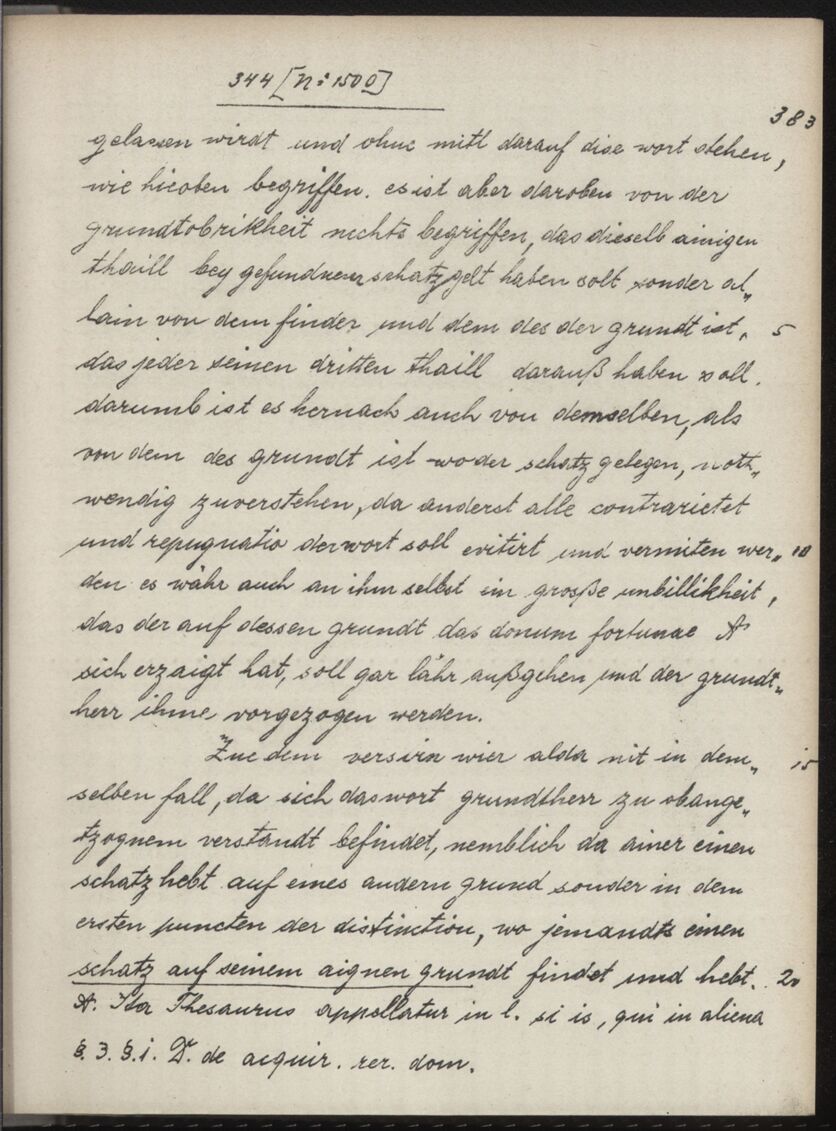 344 [N: 1500]
383
gelassen wirdt und ohne mitl darauf dise wort stehen,
wie hieoben begriffen. es ist aber daroben von der
grundtobrikheit nichts begriffen, das dieselb ainigen
thaill bey gefundnem schatzgelt haben solt sonder al„
lain von dem finder und dem des der grundt ist, 5
das jeder seinen dritten thaill darauß haben soll.
darumb ist es hernach auch von demselben, als
von dem des grundt ist wo der schatz gelegen, noth„
wendig zuverstehen, da anderst alle contrarietet
und repugnatio der wort soll evitirt und vermiten wer„ 10
den es währ auch an ihm selbst ein große unbillikheit,
das der auf dessen grundt das donum fortunae A
sich erzaigt hat, soll gar lähr außgehen und der grundt„
herr ihme vorgezogen werden.
Zue dem versirn wier alda nit in dem„ 15
selben fall, da sich das wort grundtherr zu obange„
tzognem verstandt befindet, nemblich da ainer einen
schatz hebt auf eines andern grund sonder in dem
ersten puncten der distinction, wo jemandts einen
schatz auf seinem aignen grundt findet und hebt. 20
A. Ita Thesaurus appellatur in l. si is, qui in aliena
§. 3. §. i. D. de acquir. rer. dom.